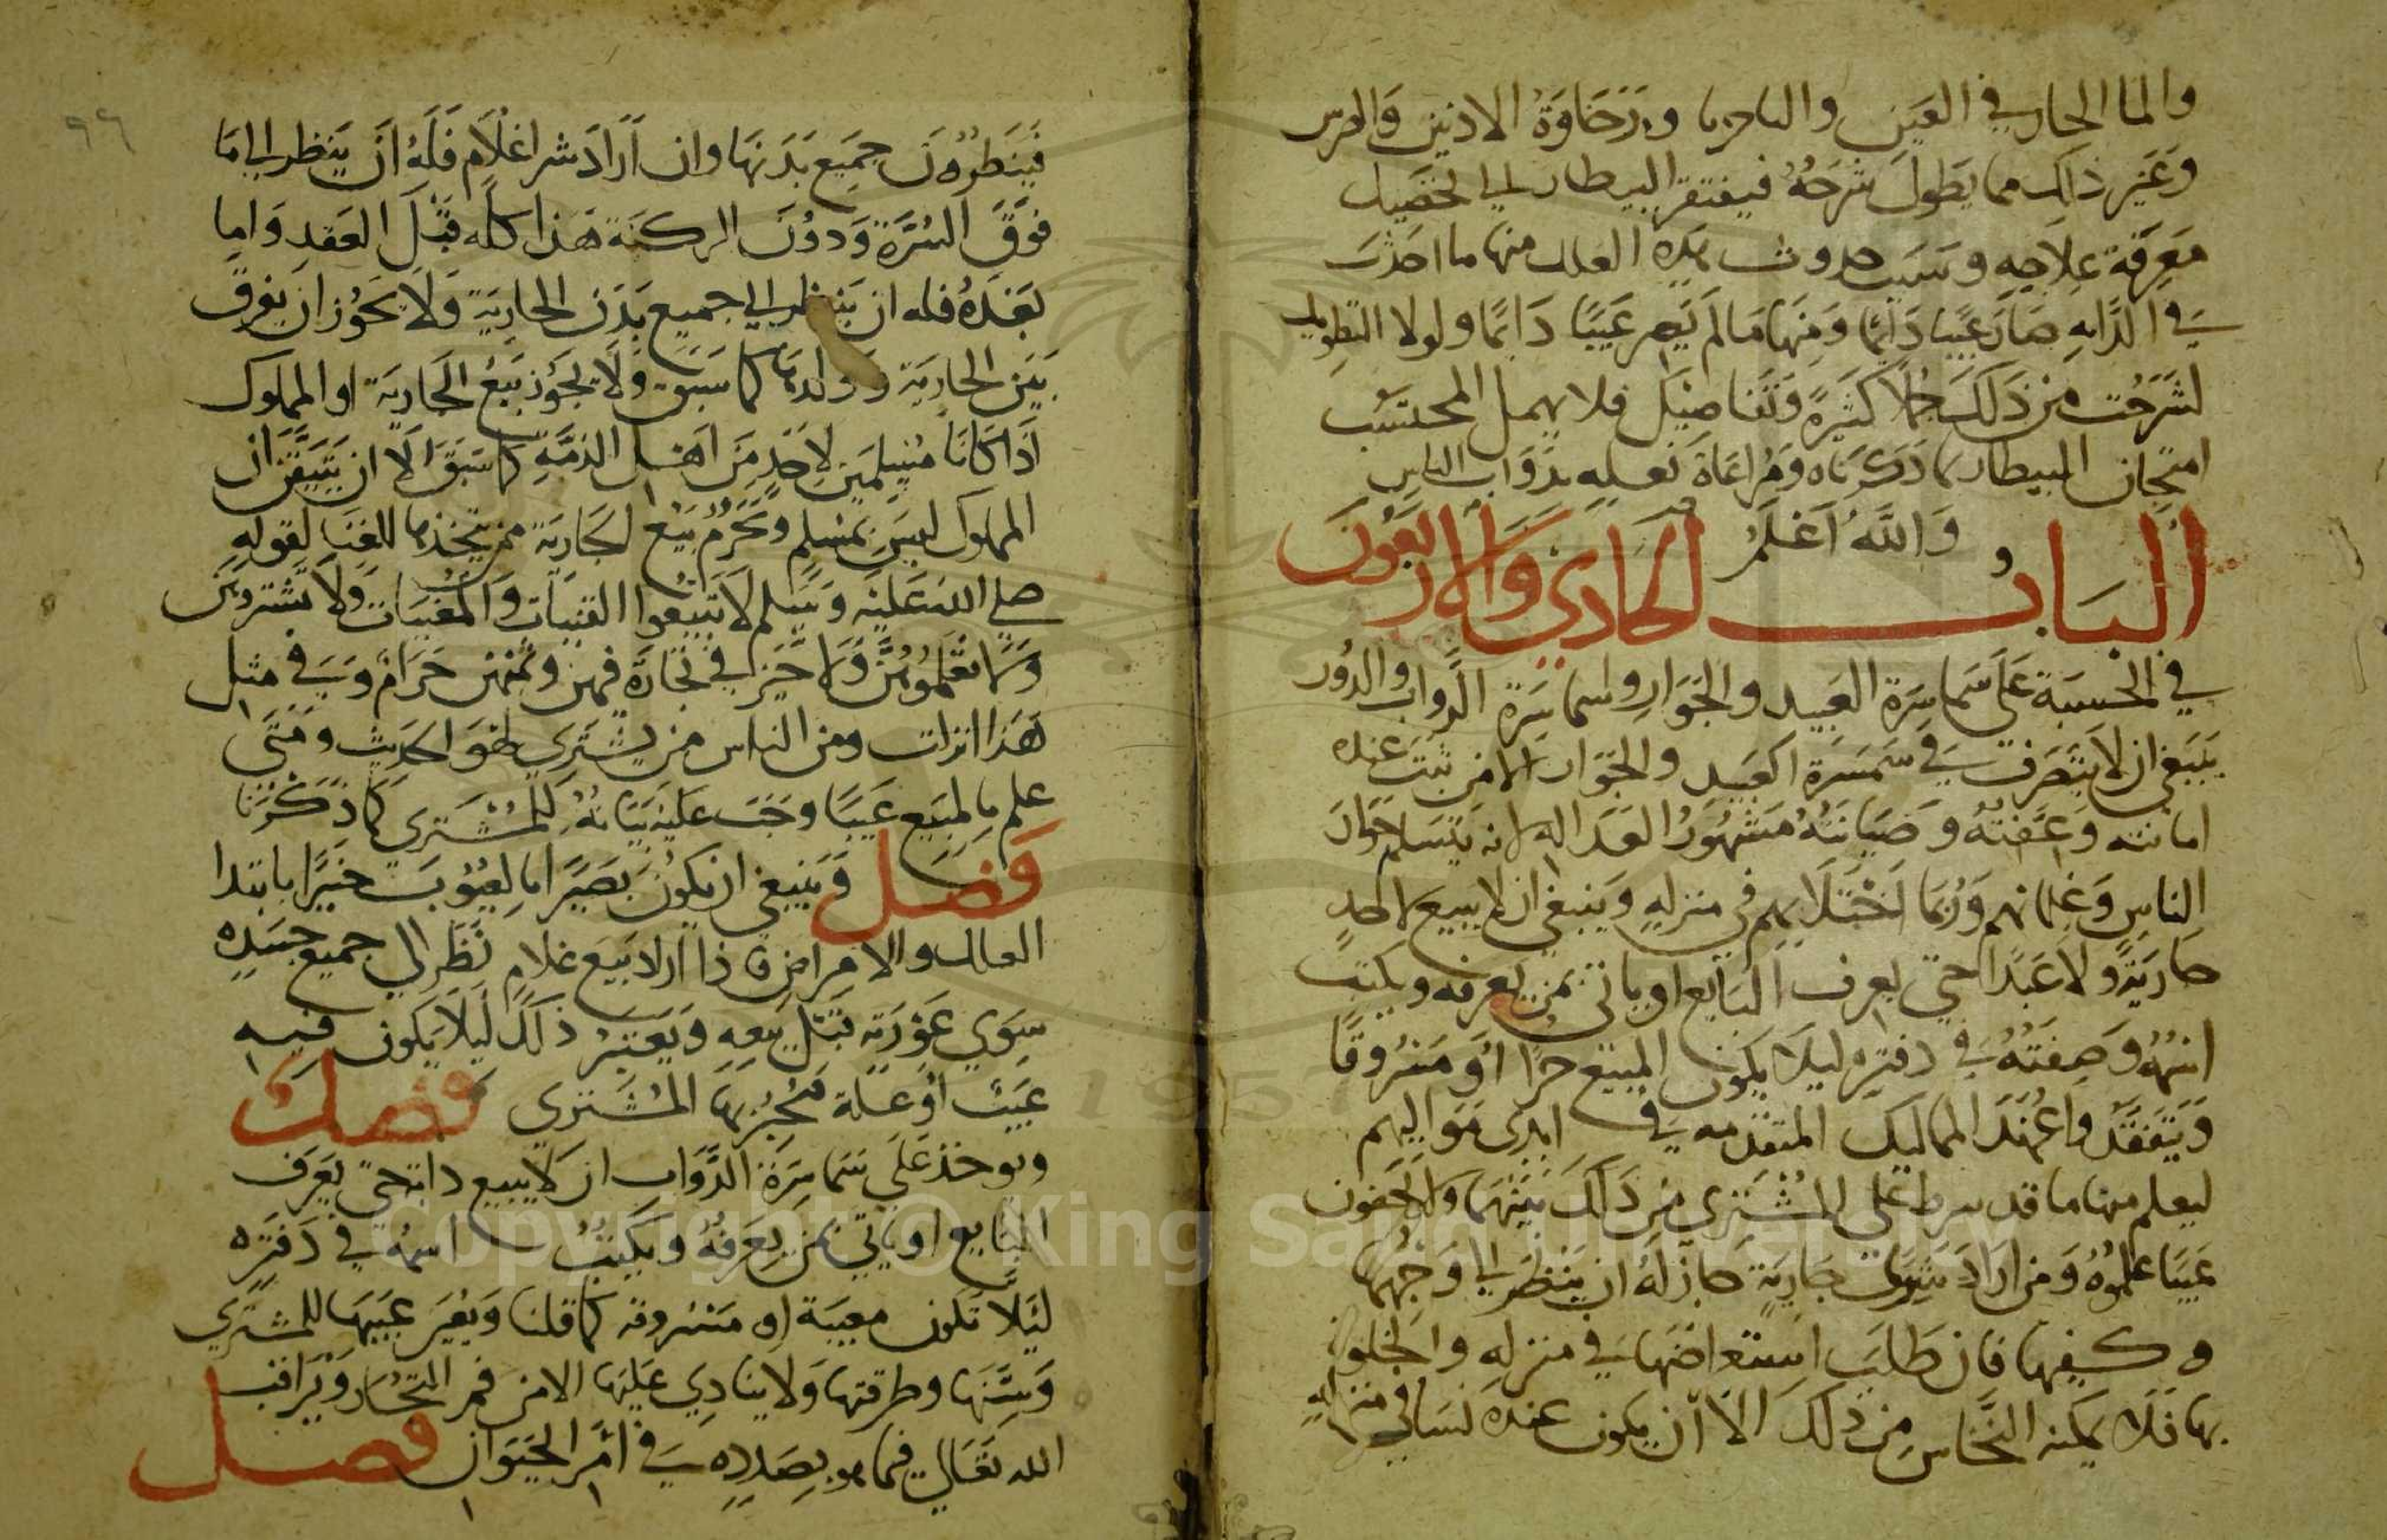 والما الحار في العين والناخرنا ورخاوة الاذنين والضرس
وغير ذلك مما يطول شرحه فيفتقر البيطار الي تحصيل
معرفة علاجه وسبب حدوث هذه العلل منها ما احدث
في الدابه صار عيبا دائما ومنها ما لم يصر عيبا دائما ولولا التطويل
لشرحت من ذلك جملا كثيرة وتفاصيل فلا يهمل المحتسب
امتحان البيطار بما ذكرناه ومراعاة فعله بدواب الناس
والله اعلم
الباب الحادي والاربعون
في الحسبة علي سماسرة العبيد والجوار وسماسرة الدواب والدور
ينبغي ان لا يتصرف في سمسرة العبيد والجوار الا من ثبت عنده
امانته وعفته وصيانته مشهور العداله لانه يتسلم جوار
الناس وغلمانهم وربما اختلا بهم في منزله وينبغي ان لا يبيع لاحد
جارية ولا عبدا حتي يعرف البايع او ياتي بمن يعرفه ويكتب
اسمه وصفته في دفتره ليلا يكون المبيع حرا او مسروقا
ويتفقد وا عهد المماليك المتقدمه في ايدي مواليهم
ليعلم منها ما قد شرط علي المشتري من ذلك بينها ولا يخفون
عيبا علموه ومن اراد شري جارية جاز له ان ينظر الي وجهها
وكفيها فان طلب استعراضها في منزله والخلوة
بها فلا يمكنه النخاس من ذلك الا ان يكون عنده نسا في منزله
٩٦
فينظرون جميع بدنها وان اراد شرا غلام فله ان ينظر الي ما
فوق السرة ودون الركبة هذا كله قبل العقد واما
بعده فله ان ينظر الي جميع بدن الجارية ولا يجوز ان يفرق
بين الجارية وولدها كما سبق ولا يجوز بيع الجارية او المملوك
اذا كانا مسلمين لاحد من اهل الذمه كما سبق الا ان يتيقن ان
المملوك ليس بمسلم ويحرم بيع الجارية ممن يتخذها للغنا لقوله
صلي الله عليه وسلم لا تبيعوا القينات والمغنيات ولا تشتروهن
ولا تعلموهن ولا خير في تجارة فيهن وثمنهن حرام وفي مثل
هذا انزلت ومن الناس من يشتري لهو الحديث ومتي
علم بالمبيع عيبا وجب عليه بيانه للمشتري كما ذكرنا
فصل وينبغي ان يكون بصيرا بالعيوب خبيرا بابتدا
العلل والامراض فاذا اراد بيع غلام نظر الي جميع جسده
سوي عورته قبل بيعه ويعتبر ذلك ليلا يكون فيه
عيب او علة فيخبر بها المشتري فصل
ويوخذ علي سماسرة الدواب ان لا يبيع دابة حتي يعرف
البايع او ياتي بمن يعرفه ويكتب اسمه في دفتره
ليلا تكون معيبة او مسروقه كما قلنا ويعير عيبها للمشتري
وسنها وطرقتها ولا ينادي عليها الا من التجار ويراقب
الله تعالي فيما هو بصدده في امر الحيوان فصل